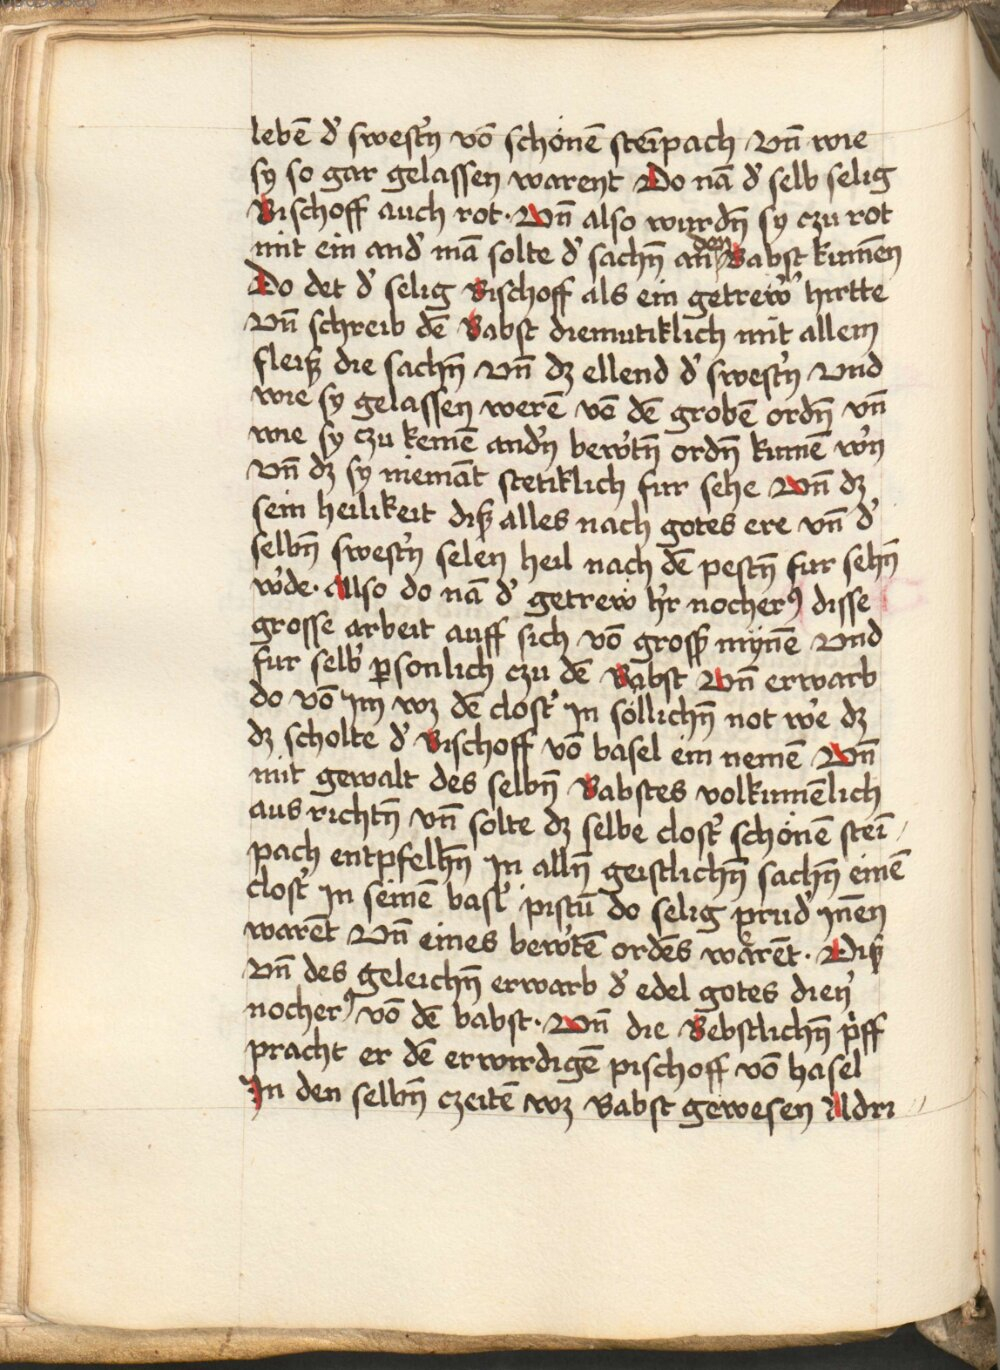 lebē d' swest'n vō schonē steīpach Vn̄ wie
sy so gar gelassen warent Do nā d' selb selig
Bischoff auch rot · Vn̄ also wurdn̄ sy czu rot
mit ein and' mā solte d' sachn̄ an den Babst kumēn
Do det d' selig Bischoff als ein getrew' hirtte
Vn̄ schreib dē Babst diemutiklich mit allem
fleiß die sachn̄ Vn̄ dz ellend d' swest'n Vnd
wie sy gelassen werē vō dē grobē ordn̄ vn̄
wie sy czu keinē and'n bew'tn̄ ordn̄ kumē w'n
Vn̄ dz sy niemāt stetiklich fur sehe Vn̄ dz
sein heilikeit diß alles nach gotes ere vn̄ d'
selbn̄ swest'n selen heil nach dē pestn̄ fur sehn̄
w'de · Allso do nā d' getrew h'r nocher9 disse
grosse arbeit auff sich vō gross' mynē Vnd
fur selb' ꝑsonlich czu dē Babst Vn̄ erwarb
do vō im wz dē clost' In sollichn̄ not we dz
dz scholte d' Bischoff vō basel ein nemē Vn̄
mit gewalt des selbn̄ Babstes volkumēlich
aus richtn̄ vn̄ solte dz selbe clost' schonē stei /
pach entpfelhn̄ In alln̄ geistlichn̄ sachn̄ einē
clost' In seinē basl' pistū do selig prud' Inēn
warēt Vn̄ eines bew'tē ordēs warēt · Diß
Vn̄ des geleichn̄ erwarb d' edel gotes dien'
nocher9 vō dē babst · Vn̄ die Bebstlichn̄ p'ff
pracht er dē erwirdigē pischoff vō basel
In den selbn̄ czeitē wz Babst gewesen Adri //